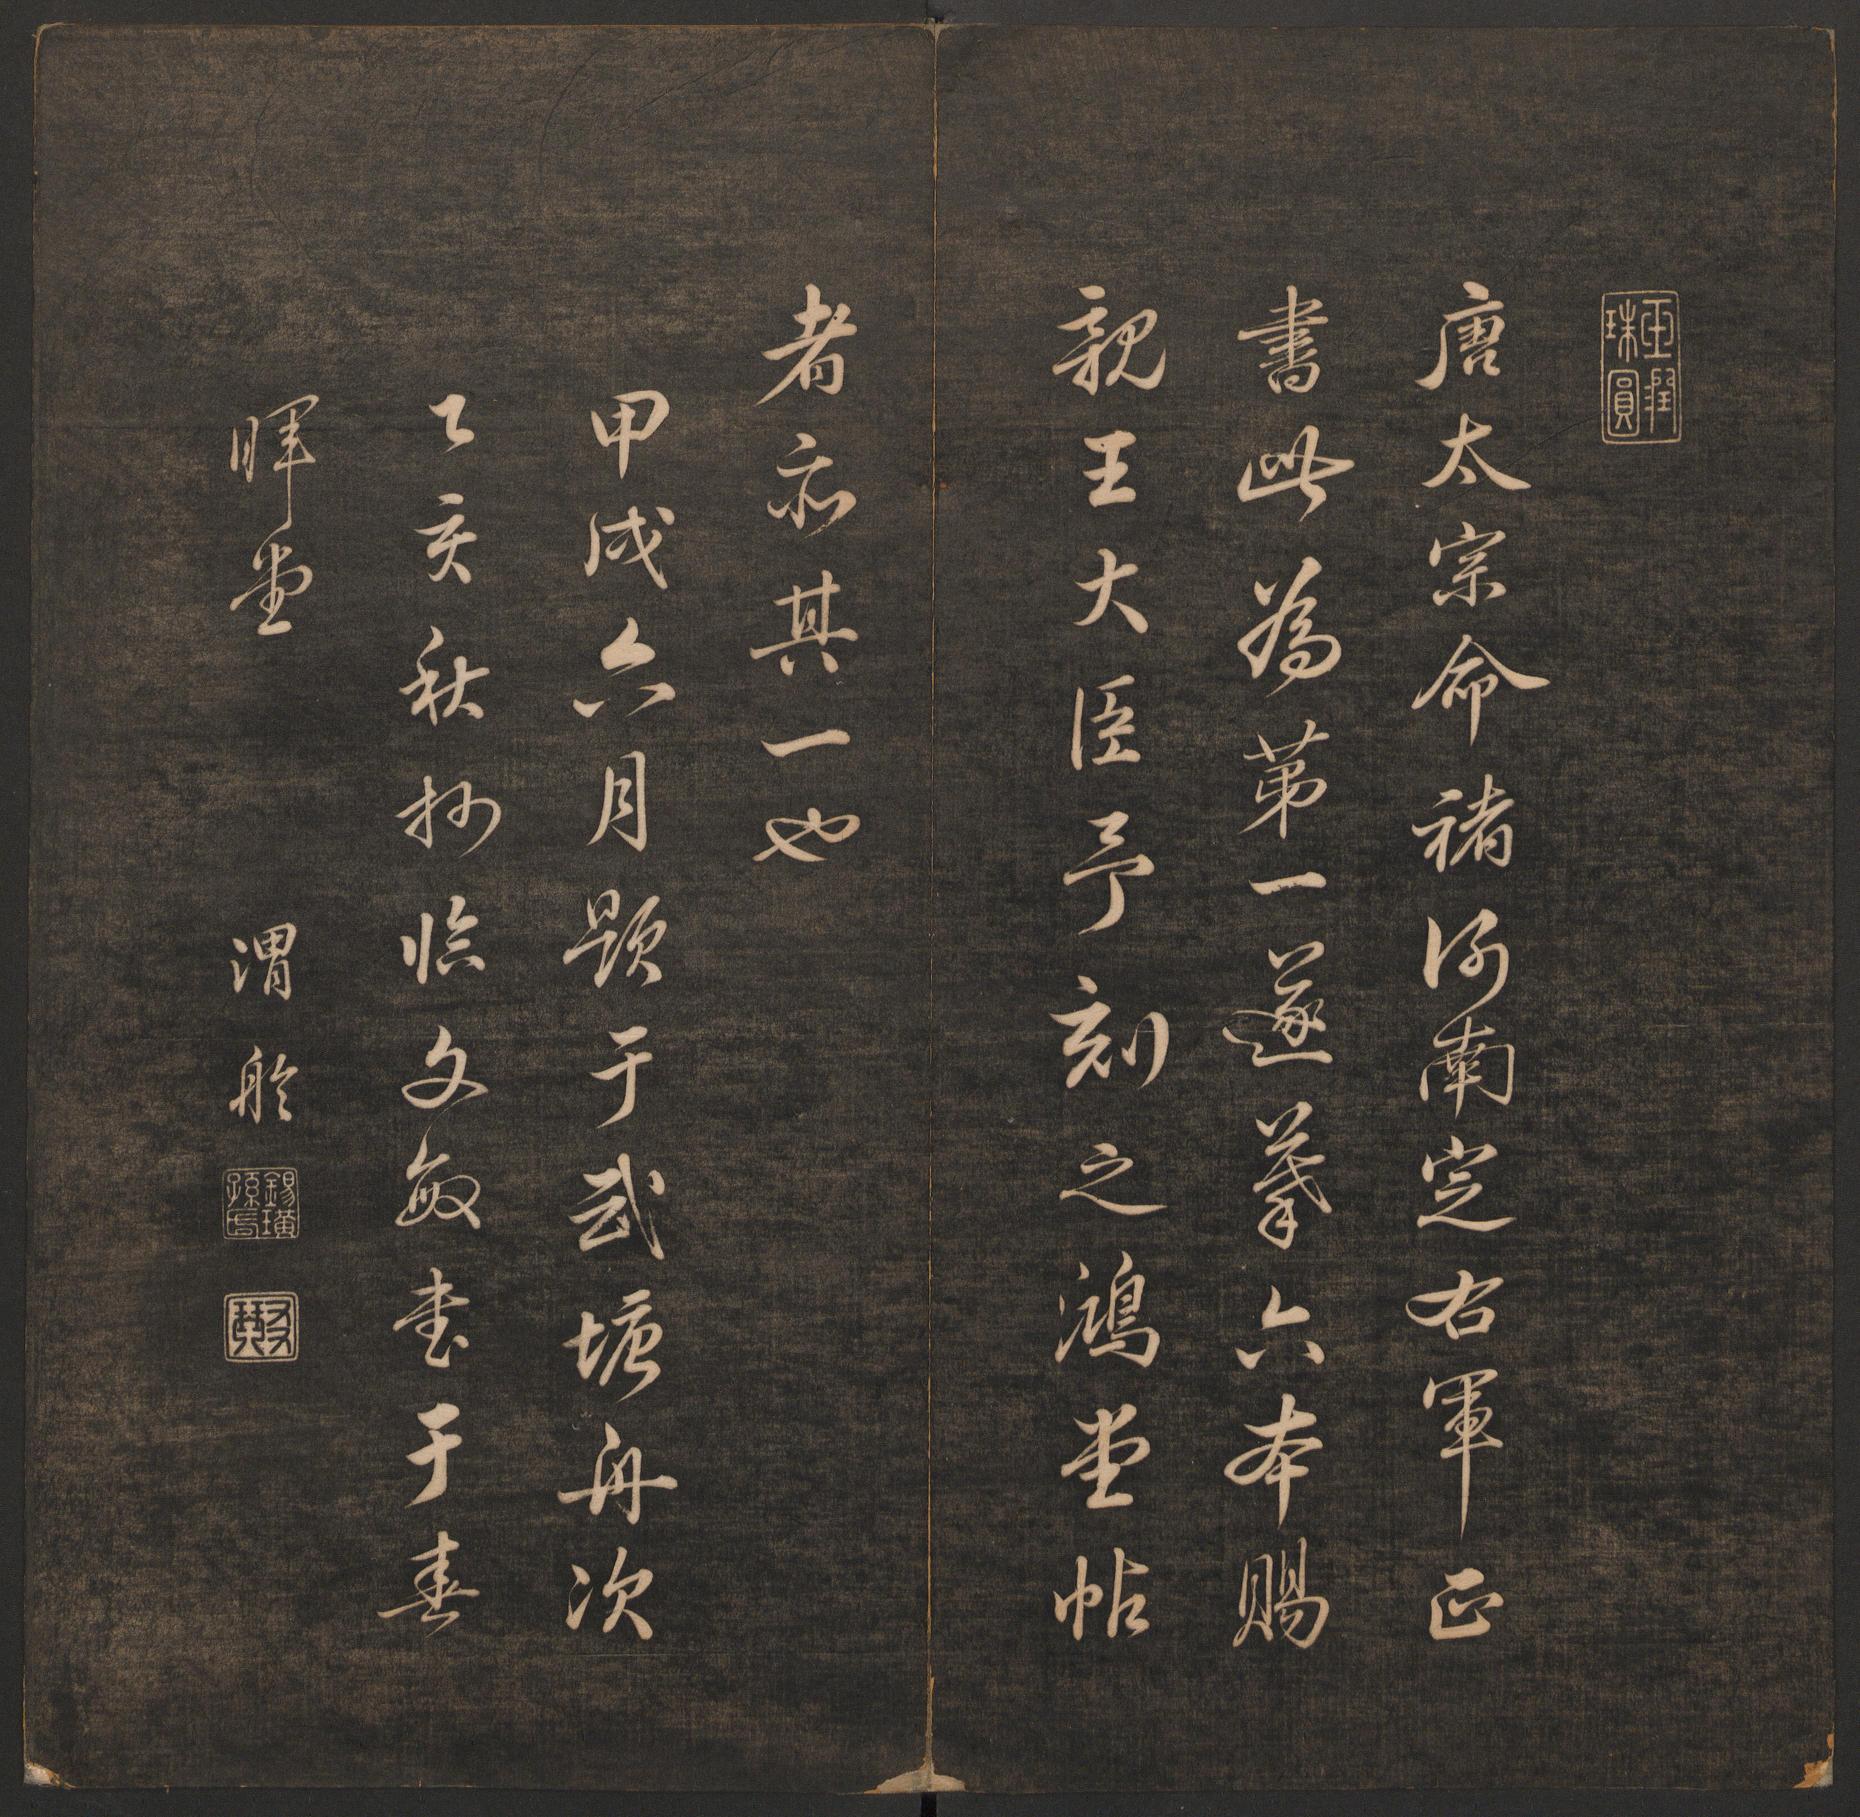 玉潤珠圓
唐太宗命褚河南定右軍正
書此為第一遂摹六本賜
親王大臣予刻之鴻堂帖
者亦其一也
甲戌六月題于武塘舟次
乙亥秋抄臨文敏書于春
暉堂 渭舲
錫璜